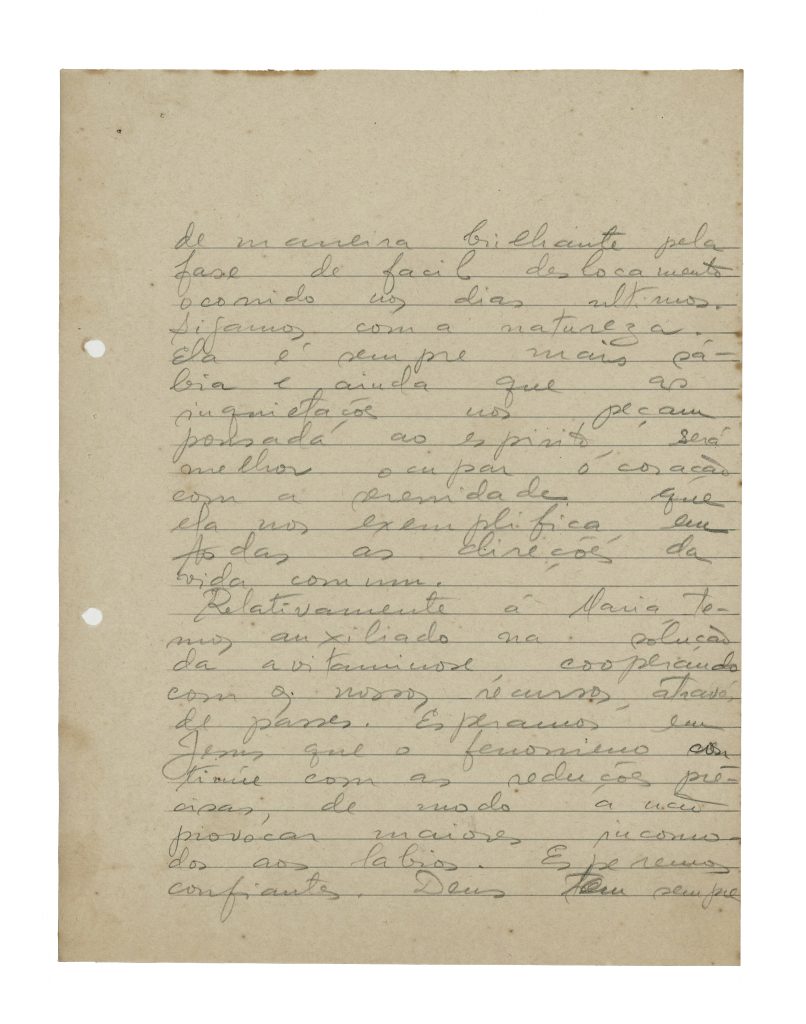 de maneira brilhante pela
fase de facil deslocamento
ocorrido nos dias ultimos.
Sigamos com a natureza.
Ela é sempre mais sá-
bia e ainda que as
inquietações nos peçam
pousada ao espirito, será
melhor ocupar o coração
com a serenidade que
ela nos exemplifica, em
todas as direções da
vida comum.
Relativamente á Maria, te-
mos auxiliado na solução
da avitaminose cooperando
com os nossos recursos, através
de passes. Esperamos em
Jesus que o fenomieno con
tinúe com as reduções pre-
cisas, de modo a não
provocar maiores incomo-
dos aos labios. Esperemos
confiantes. Deus tem sempre